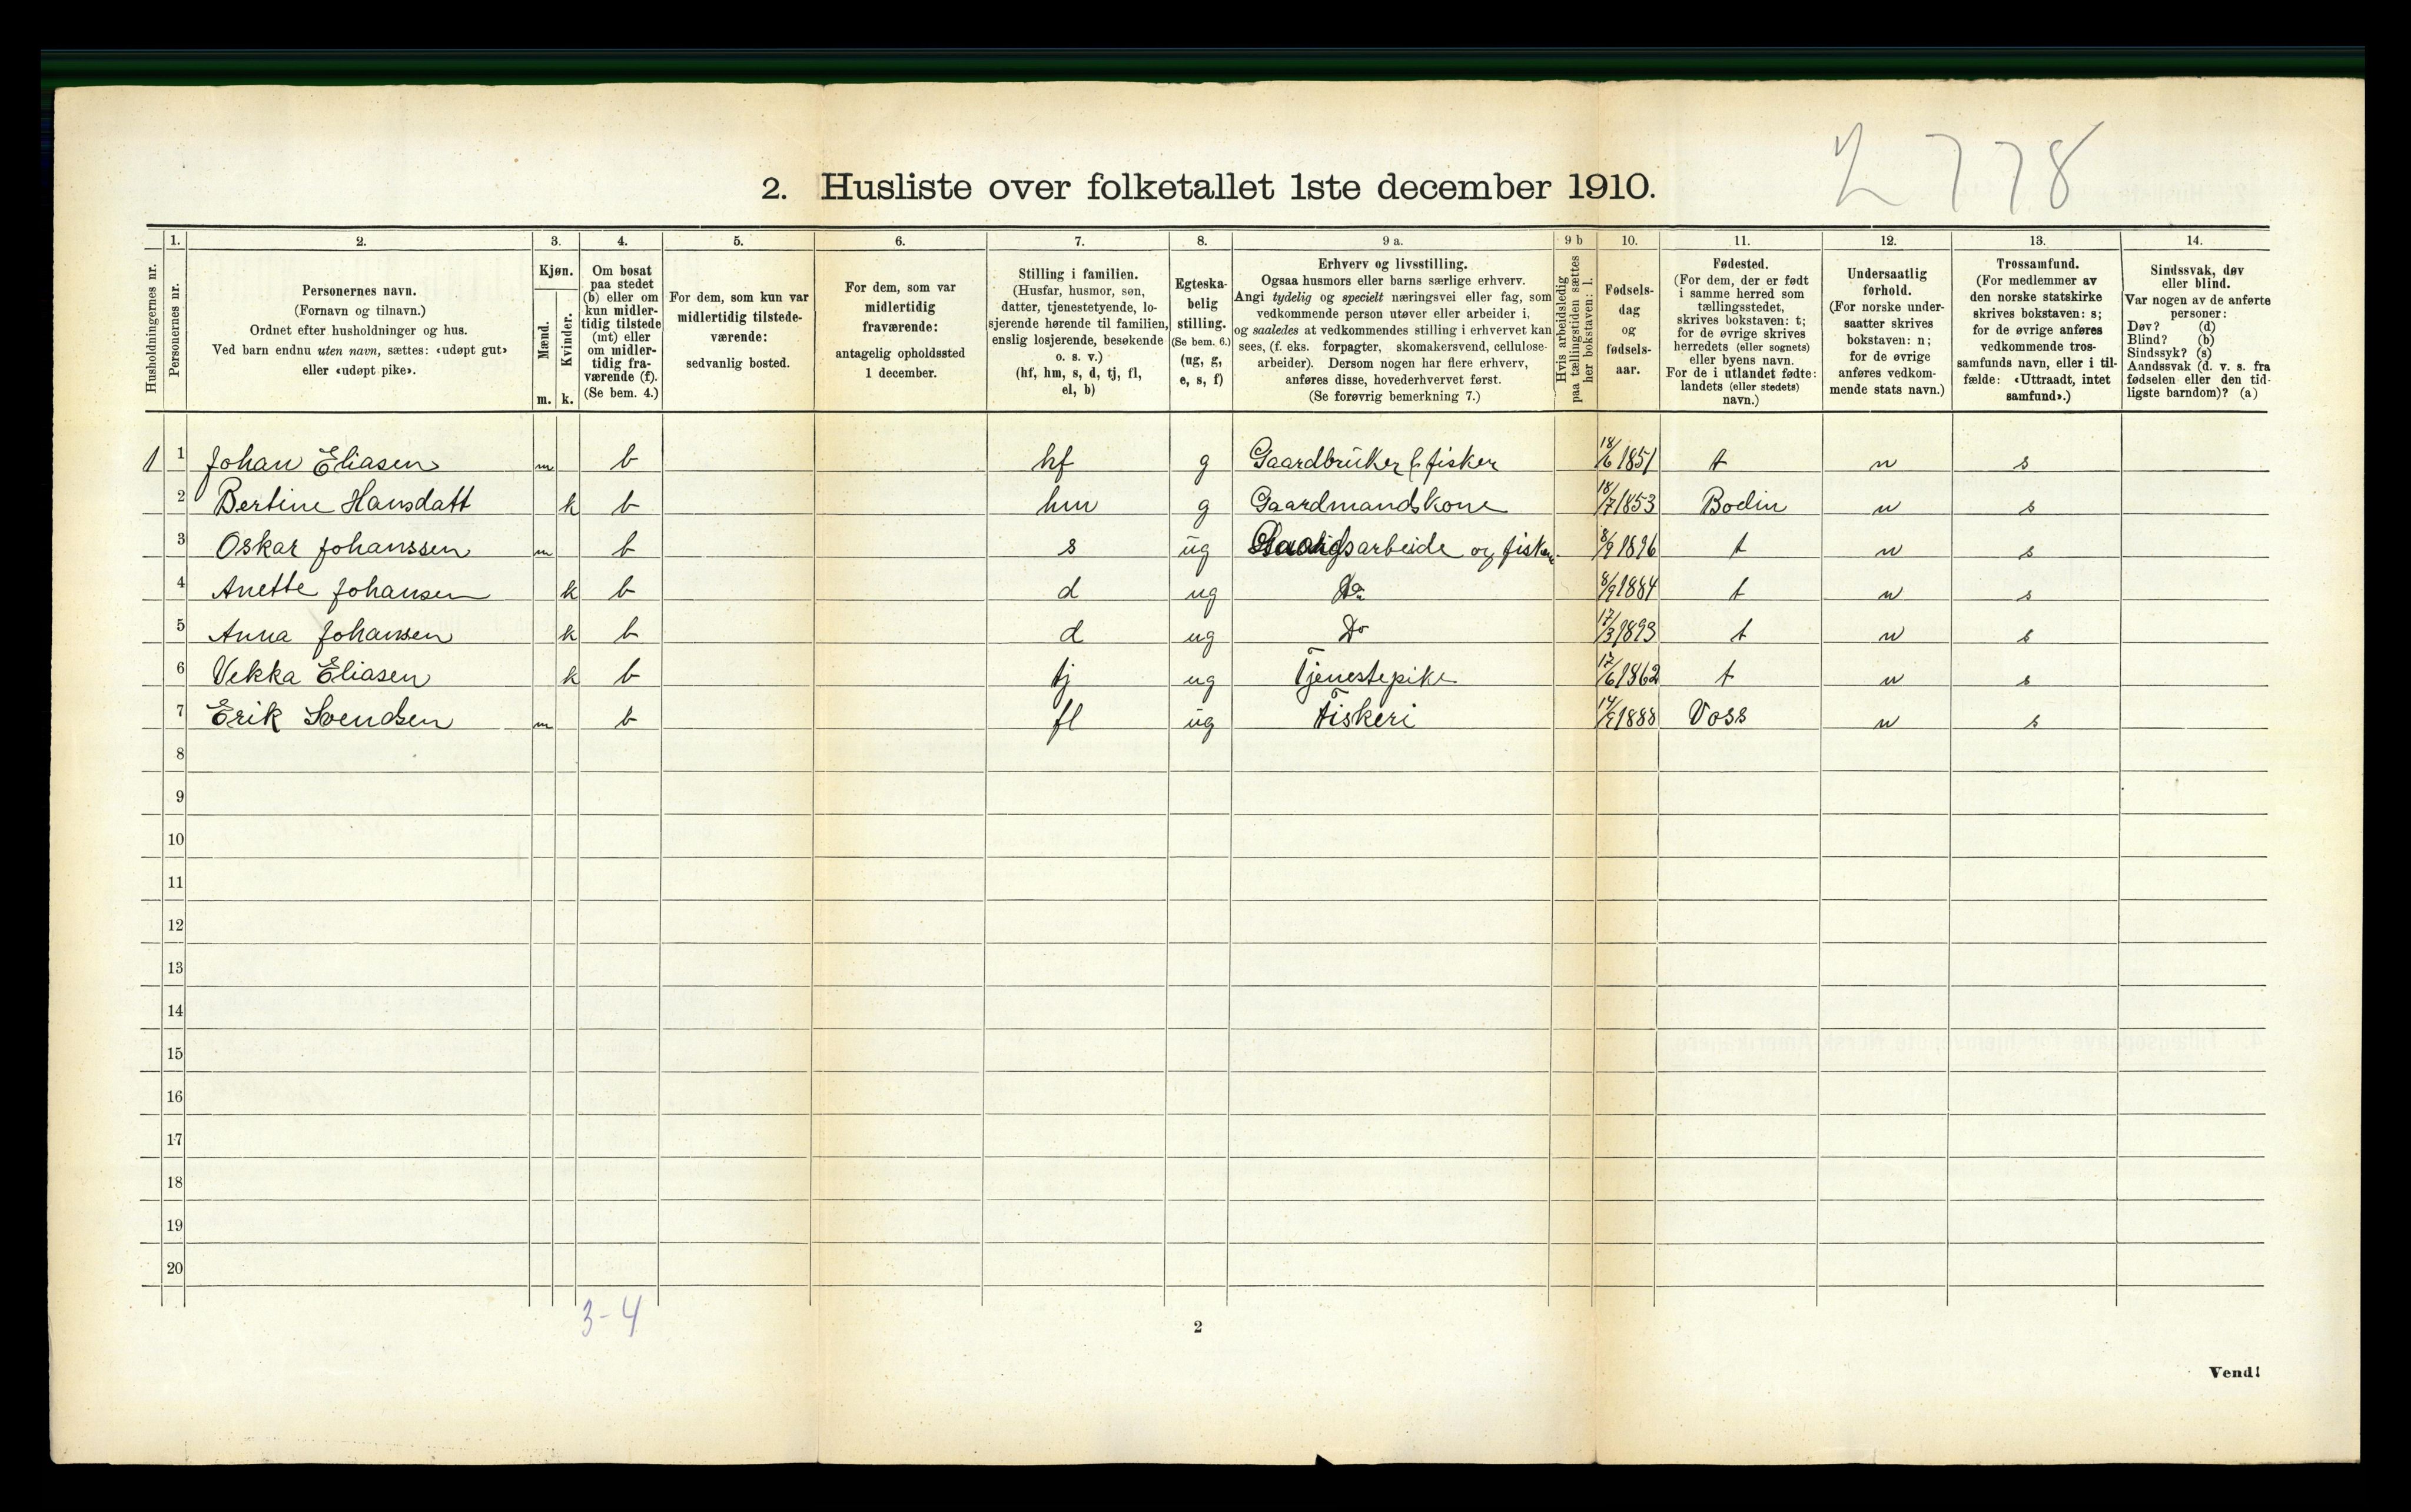 2 778
2. Husliste over folketallet 1ste december 1910.
1. 2. 3. 4. 5. 6. 7. 8. 9 a. 9 b 10. 11. 12. 13. 14.
Husholdningernes nr.
Personernes nr.
Personernes navn.
(Fornavn og tilnavn.)
Ordnet efter husholdninger og hus.
Ved barn endnu uten navn, sættes: «udøpt gut»
eller «udøpt pike».
Kjøn.
Mænd.
Kvinder.
m. k.
Om bosat
paa stedet
(b) eller om
kun midler-
tidig tilstede
(mt) eller
om midler-
tidig fra-
værende (f).
(Se bem. 4.)
For dem, som kun var
midlertidig tilstede-
værende:
sedvanlig bosted.
For dem, som var
midlertidig
fraværende:
antagelig opholdssted
1 december.
Stilling i familien.
(Husfar, husmor, søn,
datter, tjenestetyende, lo-
sjerende hørende til familien,
enslig losjerende, besøkende
o. s. v.)
(hf, hm, s, d, tj, fl,
el, b)
Egteska-
belig
stilling.
(Se bem. 6.)
(ug, g,
e, s, f)
Erhverv og livsstilling.
Ogsaa husmors eller barns særlige erhverv.
Angi tydelig og specielt næringsvei eller fag, som
vedkommende person utøver eller arbeider i,
og saaledes at vedkommendes stilling i erhvervet kan
sees, (f. eks. forpagter, skomakersvend, cellulose-
arbeider). Dersom nogen har flere erhverv,
anføres disse, hovederhvervet først.
(Se forøvrig bemerkning 7.)
Hvis arbeidsledig
paa tællingstiden sættes
her bokstaven: l.
Fødsels-
dag
og
fødsels-
aar.
Fødested.
(For dem, der er født
i samme herred som
tællingsstedet,
skrives bokstaven: t;
for de øvrige skrives
herredets (eller sognets)
eller byens navn.
For de i utlandet fødte:
landets (eller stedets)
navn.)
Undersaatlig
forhold.
(For norske under-
saatter skrives
bokstaven: n;
for de øvrige
anføres vedkom-
mende stats navn.)
Trossamfund.
(For medlemmer av
den norske statskirke
skrives bokstaven: s;
for de øvrige anføres
vedkommende tros-
samfunds navn, eller i til-
fælde: «Uttraadt, intet
samfund».)
Sindssvak, døv
eller blind.
Var nogen av de anførte
personer:
Døv? (d)
Blind? (b)
Sindssyk? (s)
Aandssvak (d. v. s. fra
fødselen eller den tid-
ligste barndom)? (a)
1 1 Johan Eliasen m b hf g Gaardbruker & fisker 18/6 1851 t n s
2 Bertine Hansdatt k b hm g Gaardmandskone 18/7 1853 Bodin n s
3 Oskar Johanssen m b s ug arbeide og fisker 8/9 1896 t n s
4 Anette Johansen k b d ug Do 8/9 1884 t n s
5 Anna Johansen k b d ug Do 17/3 1893 t n s
6 Vekka Eliasen k b tj ug Tjenestepike 17/6 1862 t n s
7 Erik Svendsen m b fl ug Fiskeri 1888 Voss n s
8
9
10
11
12
13
14
15
16
17
18
19
20
3-4
2
Vend!